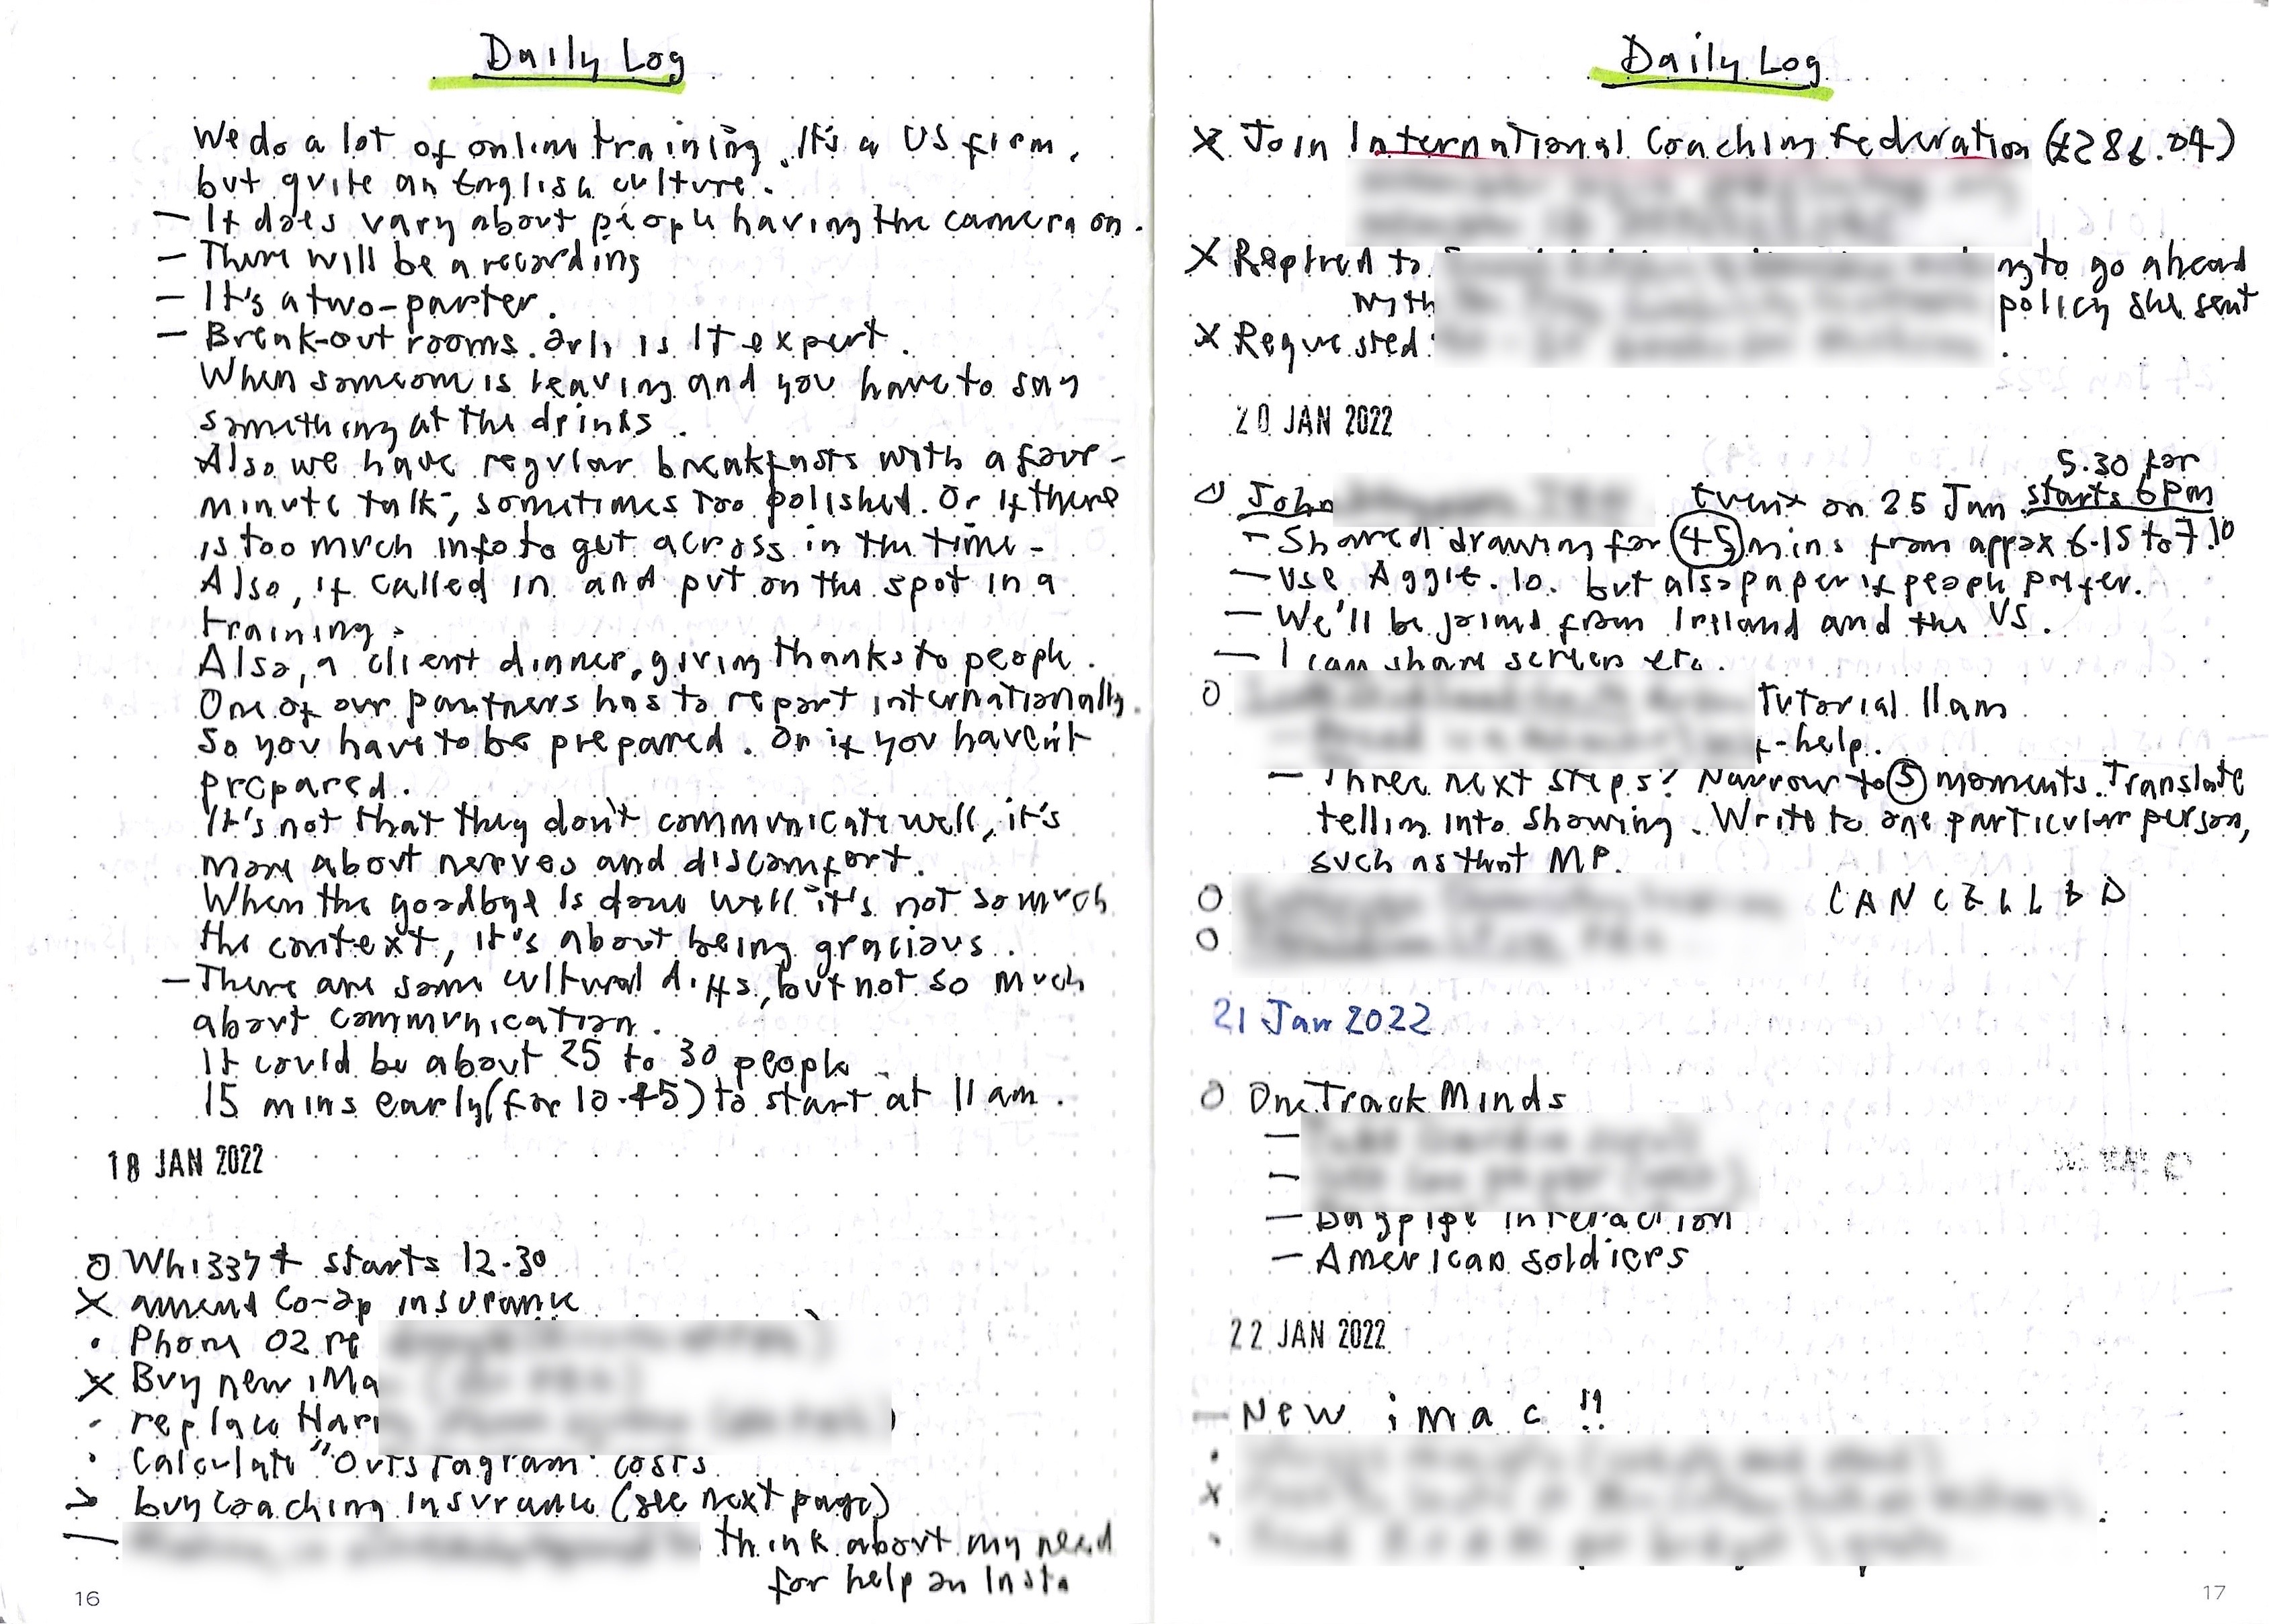 Daily Log
We do a lot of online training. It's a US firm,
but quite an English culture.
– It does vary about people having the camera on.
– There will be a recording
– It's a two-parter.
– Break-out rooms. is IT expert.
When someone is leaving and you have to say
something at the drinks.
Also we have regular breakfasts with a four-
minute talk, sometimes too polished. Or if there
is too much info to get across in the time.
Also, if called in and put on the spot in a
training.
Also, a client dinner, giving thanks to people.
One of our partners has to report internationally.
So you have to be prepared. Or if you haven't
prepared.
It's not that they don't communicate well, it's
more about nerves and discomfort.
When the goodbye is done well it's not so much
the context, it's about being gracious.
– There are some cultural diffs, but not so much
about communication.
It could be about 25 to 30 people
15 mins early (for 10.45) to start at 11 am.
18 JAN 2022
o starts 12.30
x amend Co-op insurance
• Phone O2 re
x Buy new iMa
• replace Harr
• Calculate "Outstagram" costs
> buy coaching insurance (see next page)
— think about my need
for help on Insta
16
Daily Log
x Join International Coaching Federation
x Replied to to go ahead
with policy she sent
x Requested
20 JAN 2022
5.30 for
o John event on 25 Jan starts 6pm
– Shared drawing for 45 mins from appox 6.15 to 7.10
– Use Aggie.io. but also paper if people prefer.
– We'll be joined from Ireland and the US.
– I can share screen etc.
o tutorial 11am
-help.
– Three next steps? Narrow to 5 moments. Translate
telling into showing. Write to one particular person,
such as that MP.
o CANCELLED
o
21 Jan 2022
o One Track Minds
–
–
– Bagpipe interaction
– American soldiers
22 JAN 2022
– New imac !!
•
x
•
17